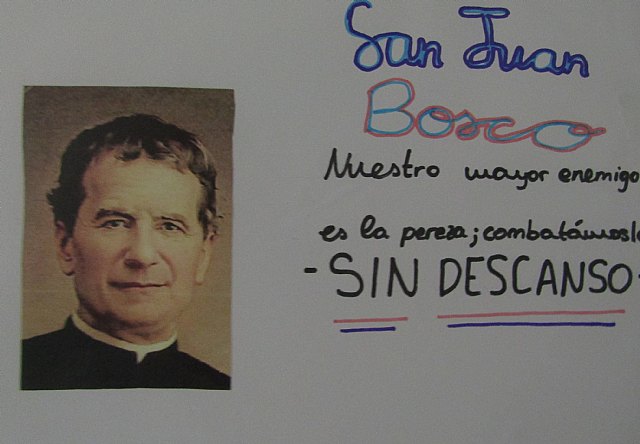 San Juan
Bosco
Nuestro mayor enemigo
es la pereza; combatámosla
- SIN DESCANSO -